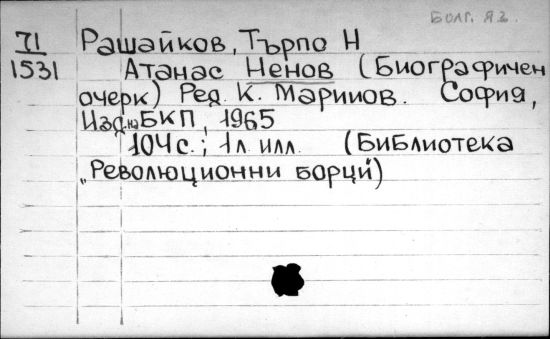 Болг. яз.
71 Рашайков, Търпо Н
1531 Атанас Ненов (Биографичен
очерк) Ред. К. Маринов. София,
Изд. на БКП, 1965
104 с.; 1 л. илл. (Библиотека
„Революционни борци")